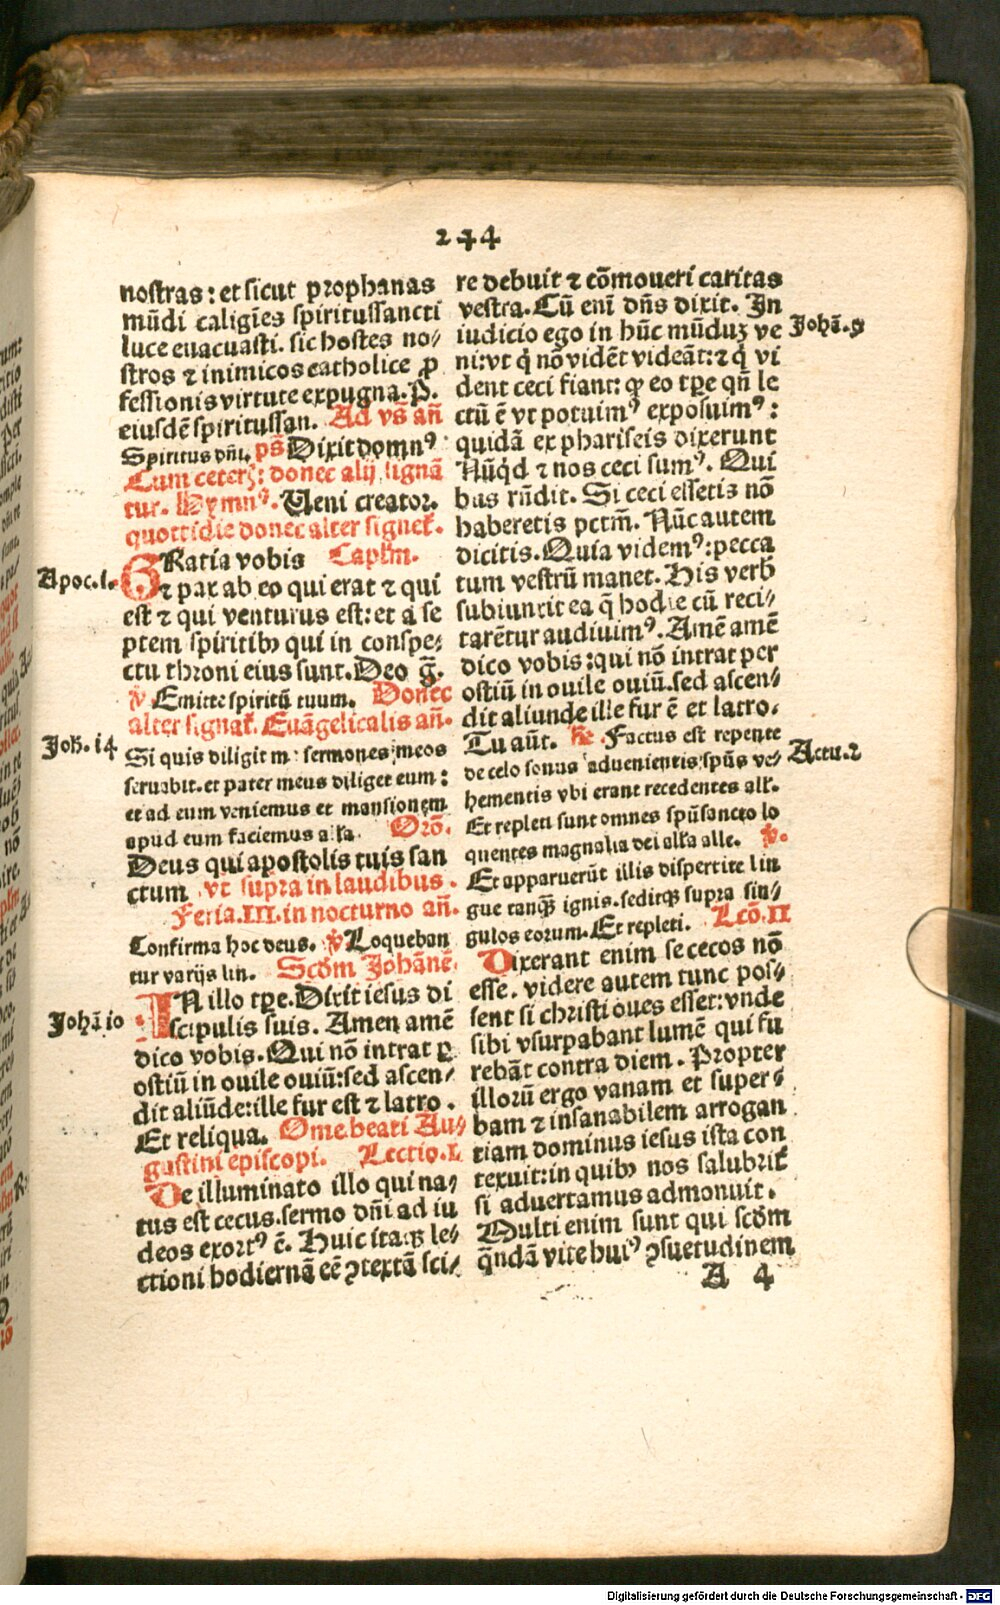 244
nostras: et sicut prophanas
mūdi caligīes spiritussancti
luce euacuasti. sic hostes no-
stros ⁊ inimicos catholice ꝓ
fessionis virtute expugna. P.
eiusdē spiritussan. Ad vs̄ an̄
Spiritus dn̄i. ps̄ Dixit domnꝰ
Cum ceterꝭ: donec alij signā
tur. Hymnꝰ. Ueni creator.
quottidie donec alter signet̄.
GRatia vobis Capl̄m.
Apoc. i.
⁊ pax ab eo qui erat ⁊ qui
est ⁊ qui venturus est: et a se
ptem spiritibꝰ qui in conspe-
ctu throni eius sunt. Deo ḡ.
℣ Emitte spiritū tuum. Donec
alter signat̄. Euāgelicalis an̄.
Joh. i4
Si quis diligit m: sermones meos
seruabit. et pater meus diliget eum:
et ad eum veniemus et mansionem
apud eum faciemus alla. Orō.
Deus qui apostolis tuis san
ctum vt supra in laudibus.
Feria. III. in nocturno an̄.
Confirma hoc deus. ℣ Loqueban
tur varijs lin. Scd̄m Johānē.
IN illo tꝑe. Dixit iesus di
Johā io
scipulis suis. Amen amē
dico vobis. Qui nō intrat ꝑ
ostiū in ouile ouiū: sed ascen-
dit aliūde: ille fur est ⁊ latro.
Et reliqua. Ome. beati Au-
gustini episcopi. Lectio. I.
De illuminato illo qui na-
tus est cecus. sermo dn̄i ad iu
deos exortꝰ ē. Huic itaqꝫ le-
ctioni hodiernā eē ꝯtextā sci-
re debuit ⁊ cōmoueri caritas
vestra. Cū eni dn̄s dixit. In
iudicio ego in hūc mūduꝫ ve
Johā. 9
ni: vt q̇ nō vidēt videāt: ⁊ q̇ vi
dent ceci fiant: ꝙ eo tꝑe qn̄ le
ctū ē vt potuimꝰ exposuimꝰ:
quidā ex phariseis dixerunt
Nūqd ⁊ nos ceci sumꝰ. Qui
bus rn̄dit. Si ceci essetis nō
haberetis pctm̄. Nūc autem
dicitis. Quia videmꝰ: pecca
tum vestrū manet. His verb
subiunxit ea q̄ hodie cū reci-
tarētur audiuimꝰ. Amē amē
dico vobis: qui nō intrat per
ostiū in ouile ouiū. sed ascen-
dit aliunde ille fur ē et latro.
Tu aūt. ℟. Factus est repente
Actu. 2
de celo sonus aduenientis spūs ve-
hementis vbi erant recedentes all̄.
Et repleti sunt omnes spūsancto lo
quentes magnalia dei alla alle. ℣.
Et apparuerūt illis dispertite lin
gue tanqꝫ ignis. seditqꝫ supra sin-
gulos eorum. Et repleti. Lcō. II
Dixerant enim se cecos nō
esse. videre autem tunc pos-
sent si christi oues essēt: vnde
sibi vsurpabant lumē qui fu
rebāt contra diem. Propter
illorū ergo vanam et super-
bam ⁊ insanabilem arrogan
tiam dominus iesus ista con
texuit: in quibꝰ nos salubrit̄
si aduertamus admonuit.
Multi enim sunt qui scd̄m
q̄ndā vite huiꝰ ꝯsuetudinem
A 4
Digitalisierung gefördert durch die Deutsche Forschungsgemeinschaft - DFG